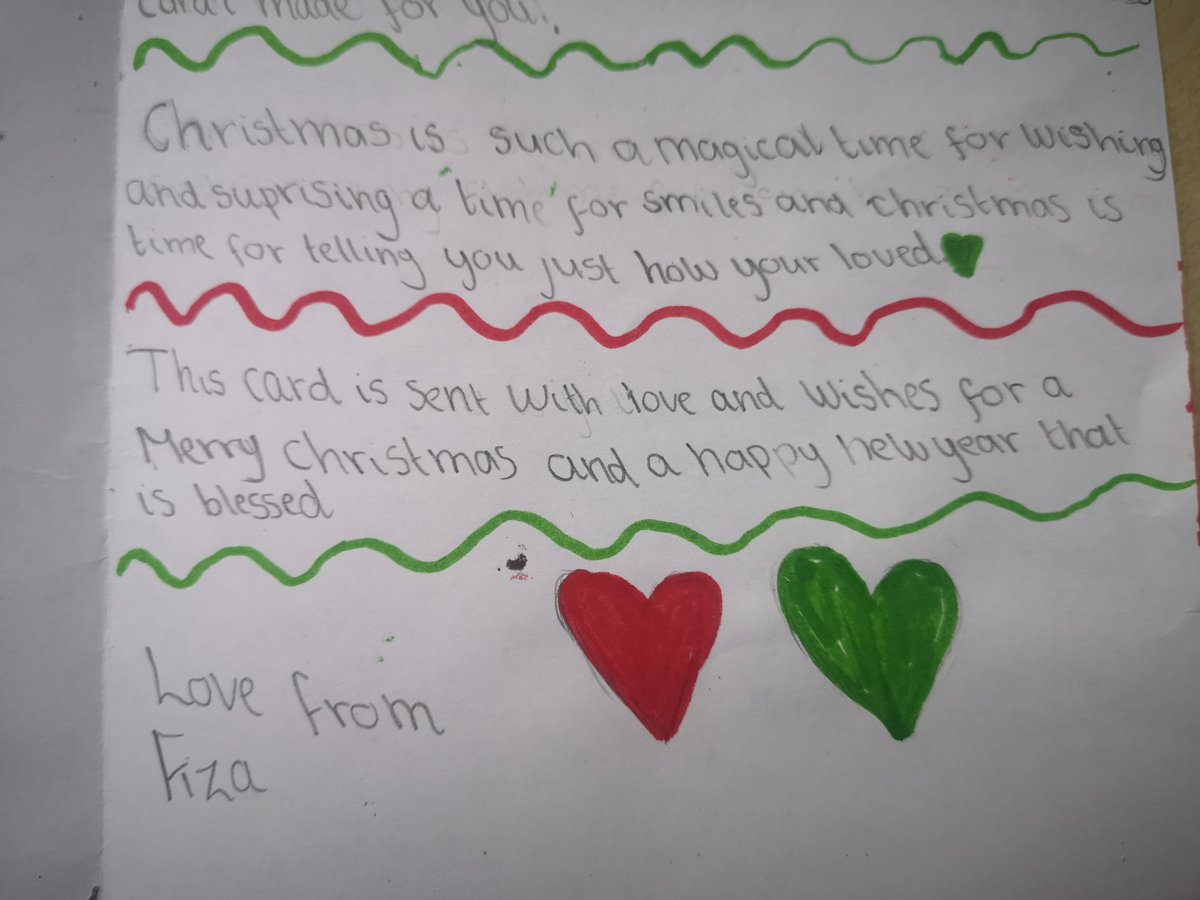 made for you!
Christmas is such a magical time for wishing
and suprising a time for smiles and christmas is
time for telling you just how your loved
This card is sent with love and wishes for a
Merry christmas and a happy new year that
is blessed
Love from
Fiza